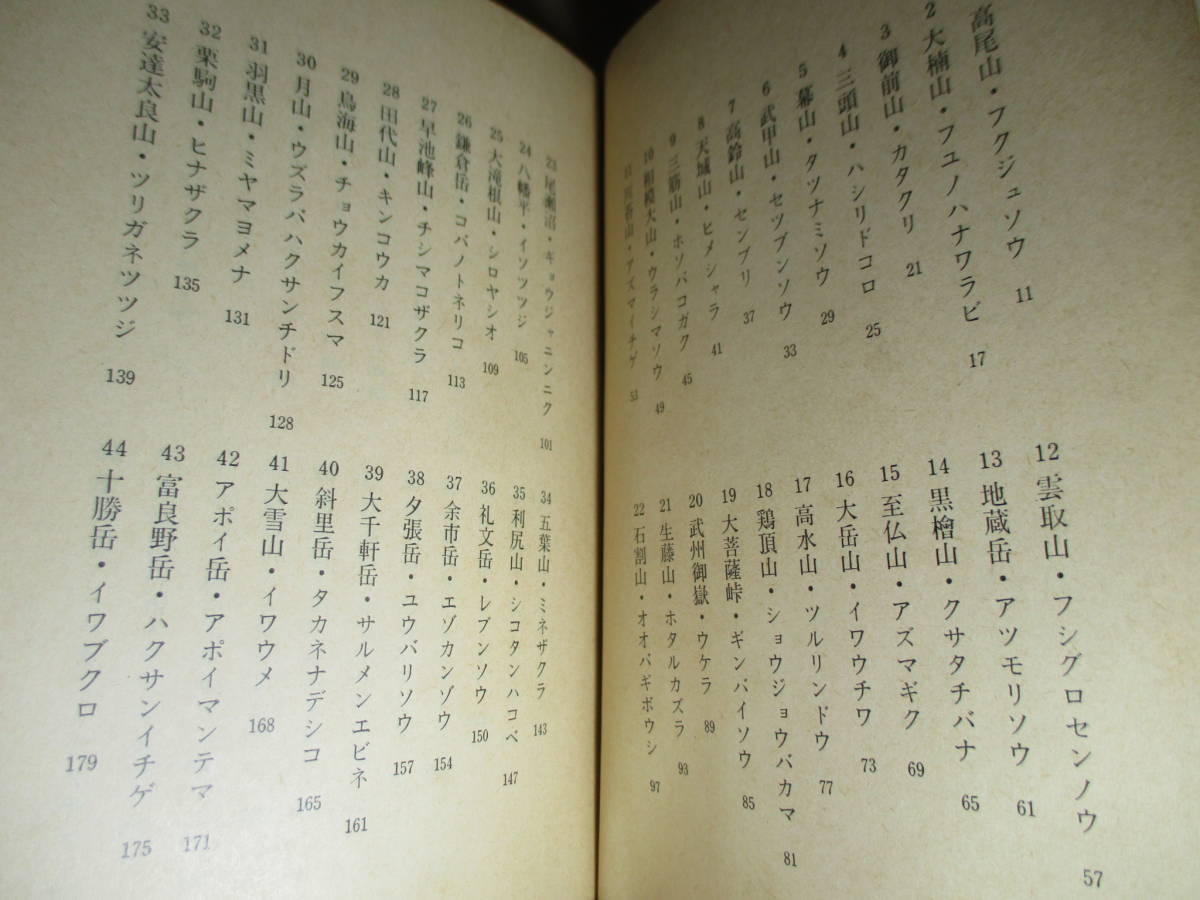 高尾山・フクジュソウ 11
2 大楠山・フユノハナワラビ 17
3 御前山・カタクリ 21
4 三頭山・ハシリドコロ 25
5 幕山・タツナミソウ 29
6 武甲山・セツブンソウ 33
7 高鈴山・センブリ 37
8 天城山・ヒメシャラ 41
9 三筋山・ホソバコガク 45
10 相模大山・ウラシマソウ 49
11 川苔山・アズマイチゲ 53
12 雲取山・フシグロセンノウ 57
13 地蔵岳・アツモリソウ 61
14 黒檜山・クサタチバナ 65
15 至仏山・アズマギク 69
16 大岳山・イワウチワ 73
17 高水山・ツルリンドウ 77
18 鶏頂山・ショウジョウバカマ 81
19 大菩薩峠・ギンバイソウ 85
20 武州御嶽・ウケラ 89
21 生藤山・ホタルカズラ 93
22 石割山・オオバギボウシ 97
23 尾瀬沼・ギョウジャニンニク 101
24 八幡平・イソツツジ 105
25 大滝根山・シロヤシオ 109
26 鎌倉岳・コバノトネリコ 113
27 早池峰山・チシマコザクラ 117
28 田代山・キンコウカ 121
29 鳥海山・チョウカイフスマ 125
30 月山・ウズラバハクサンチドリ 128
31 羽黒山・ミヤマヨメナ 131
32 栗駒山・ヒナザクラ 135
33 安達太良山・ツリガネツツジ 139
34 五葉山・ミネザクラ 143
35 利尻山・シコタンハコベ 147
36 礼文岳・レブンソウ 150
37 余市岳・エゾカンゾウ 154
38 夕張岳・ユウバリソウ 157
39 大千軒岳・サルメンエビネ 161
40 斜里岳・タカネナデシコ 165
41 大雪山・イワウメ 168
42 アポイ岳・アポイマンテマ 171
43 富良野岳・ハクサンイチゲ 175
44 十勝岳・イワブクロ 179